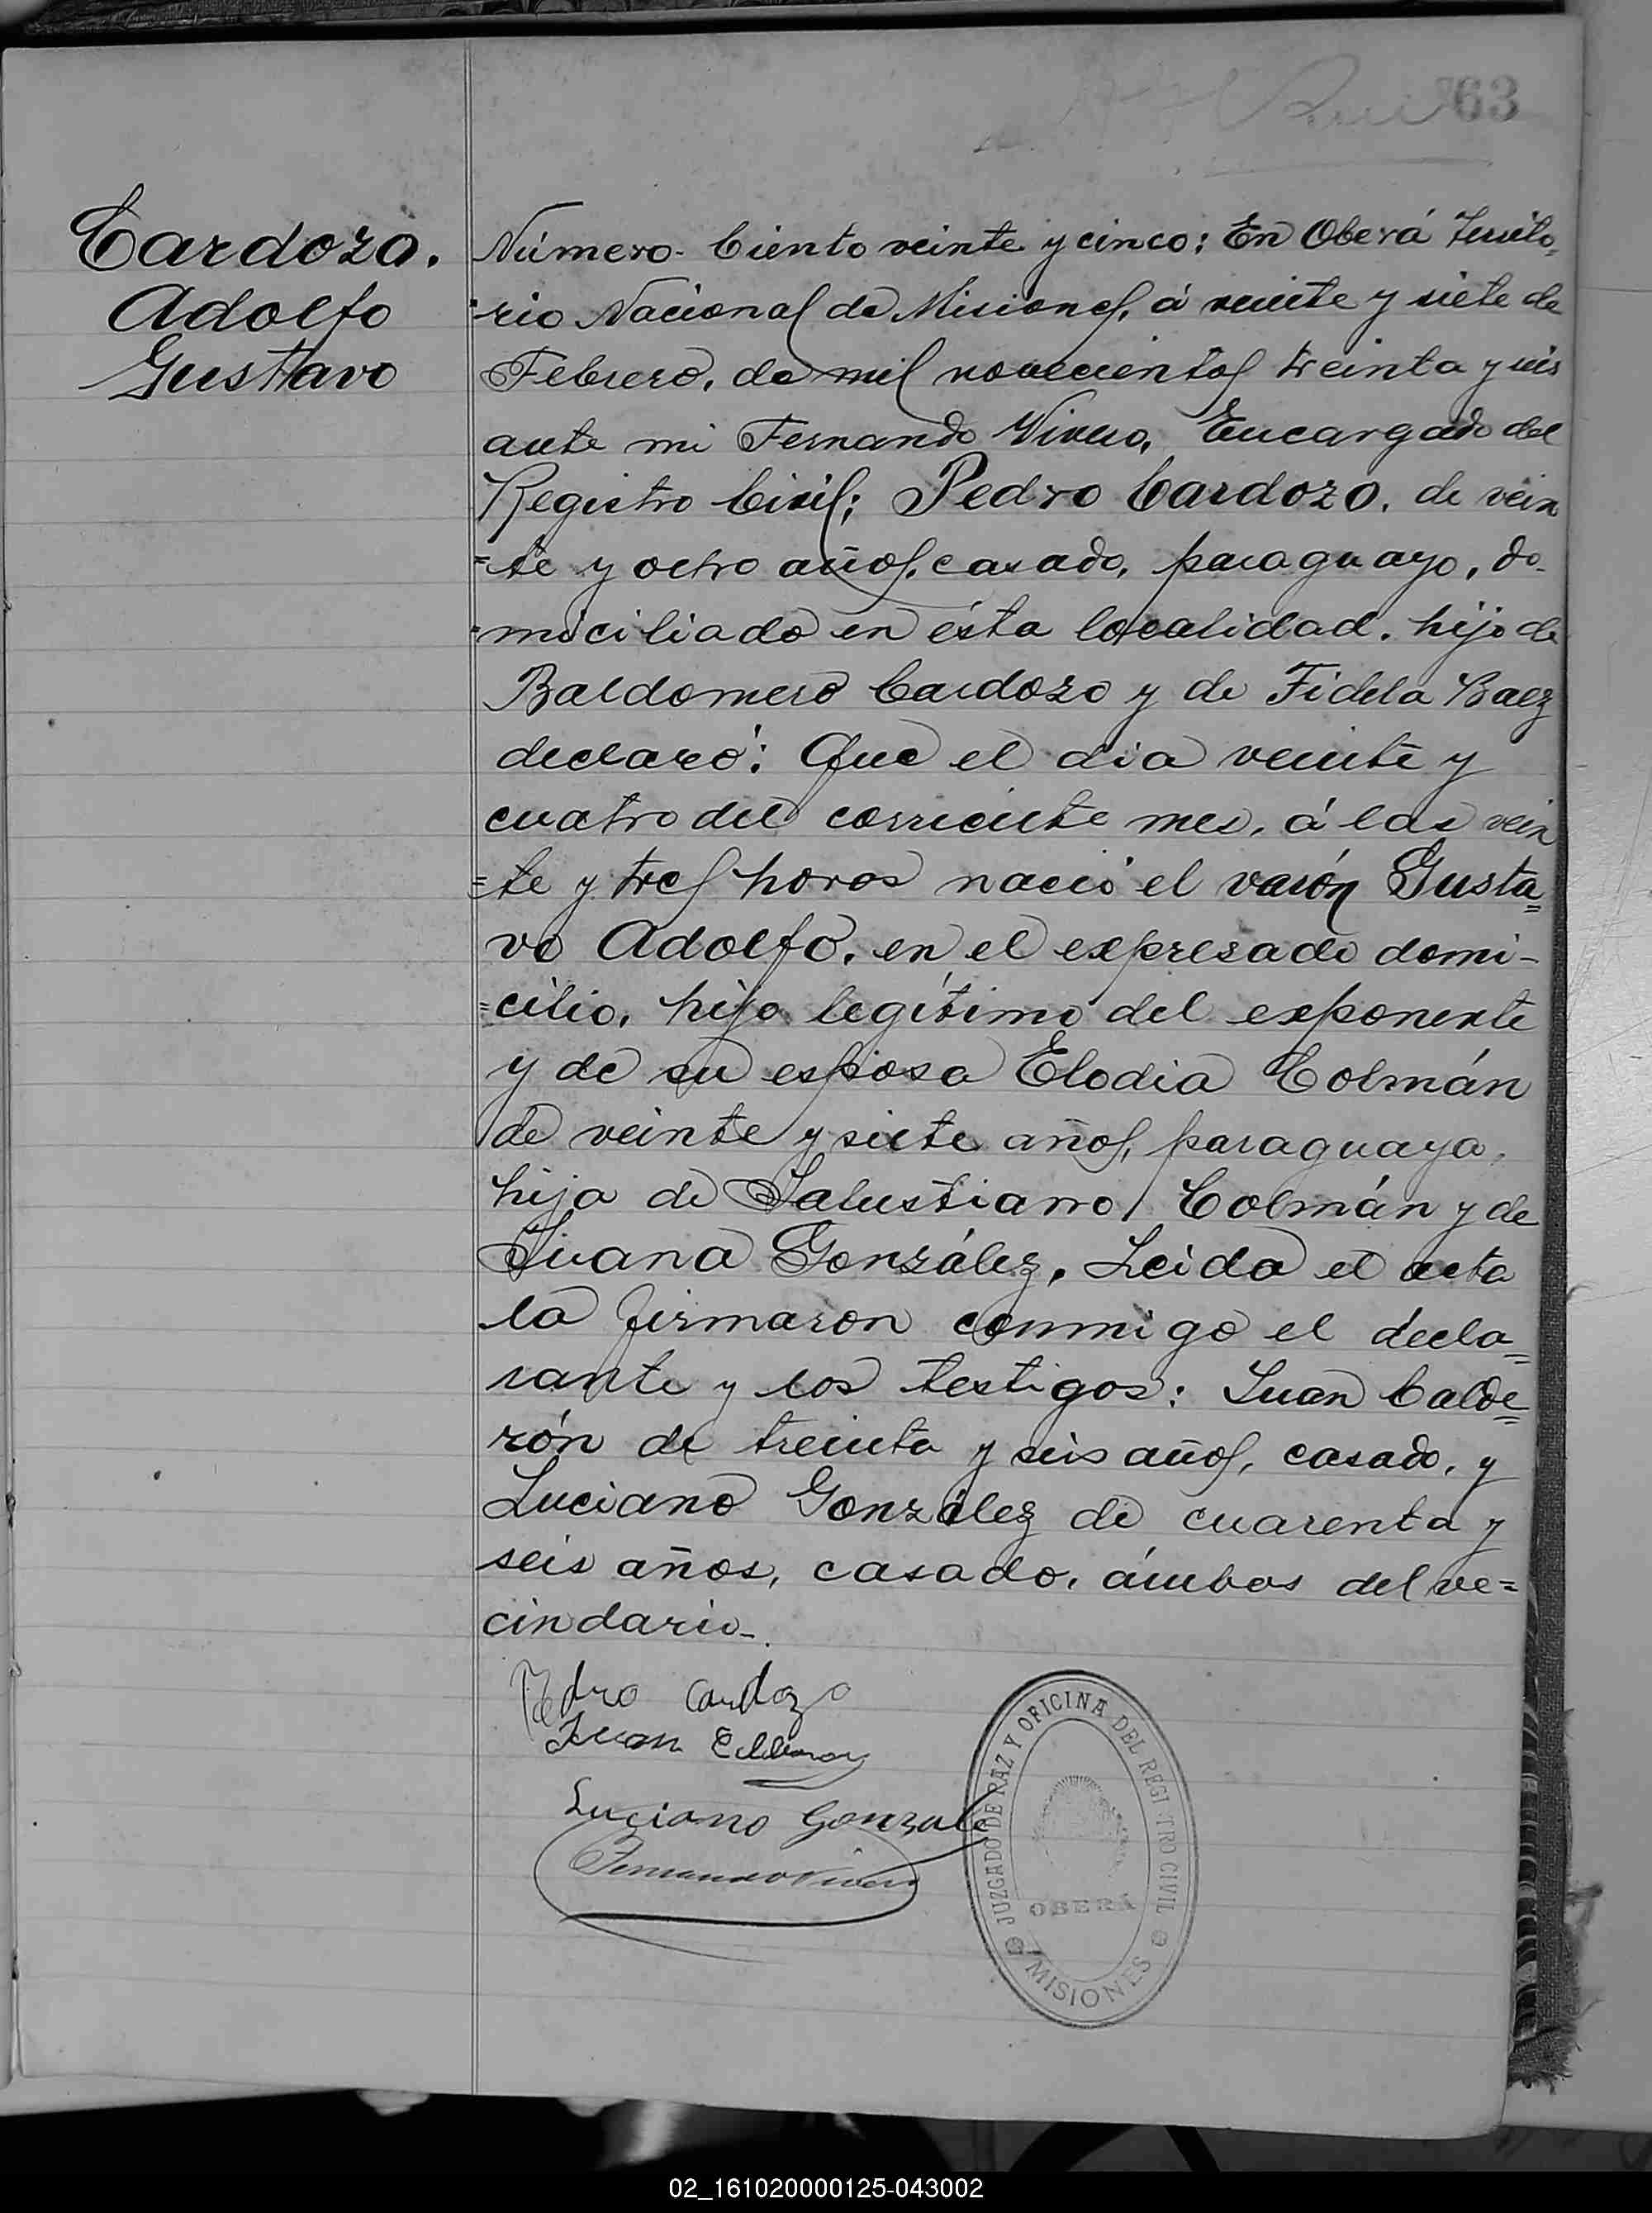 63
Cardozo.
Adolfo
Gustavo
Número. Ciento veinte y cinco: En Oberá Territo-
rio Nacional de Misiones, á veinte y siete de
Febrero, de mil novecientos treinta y seis
ante mi Fernando Vivero, Encargado del
Registro Civil; Pedro Cardozo, de vein
=te y ocho años, casado, paraguayo, do-
miciliado en ésta localidad, hijo de
Baldomero Cardozo y de Fidela Baez
declaró: Que el dia veinte y
cuatro del corriente mes, á las vein
=te y tres horas nació el varón Gusta=
vo Adolfo, en el expresado domi-
=cilio, hijo legítimo del exponente
y de su esposa Elodia Colmán
de veinte y siete años, paraguaya,
hija de Salustiano Colmán y de
Juana González, Leida el acta
la firmaron conmigo el decla=
rante y los testigos: Juan Calde=
rón de treinta y seis años, casado, y
Luciano González de cuarenta y
seis años, casado, ámbos del ve=
cindario-.
Pedro Cardozo
Juan
Luciano Gonzale
Fernando Vivero
JUZGADO DE PAZ Y OFICINA DEL REGISTRO CIVIL
OBERÁ
MISIONES
02_161020000125-043002